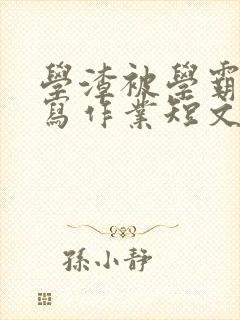 學渣被學霸
寫作業短文
孫小靜